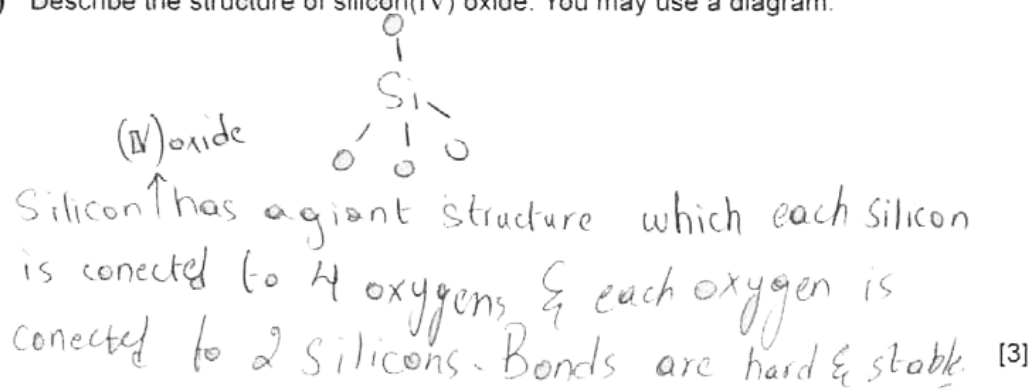 ) Describe the structure of silicon(IV) oxide. You may use a diagram.
O
Si
O O O
(IV) oxide
Silicon ↑ has a giant structure which each silicon
is conected to 4 oxygens & each oxygen is
conected to 2 silicons. Bonds are hard & stable. [3]